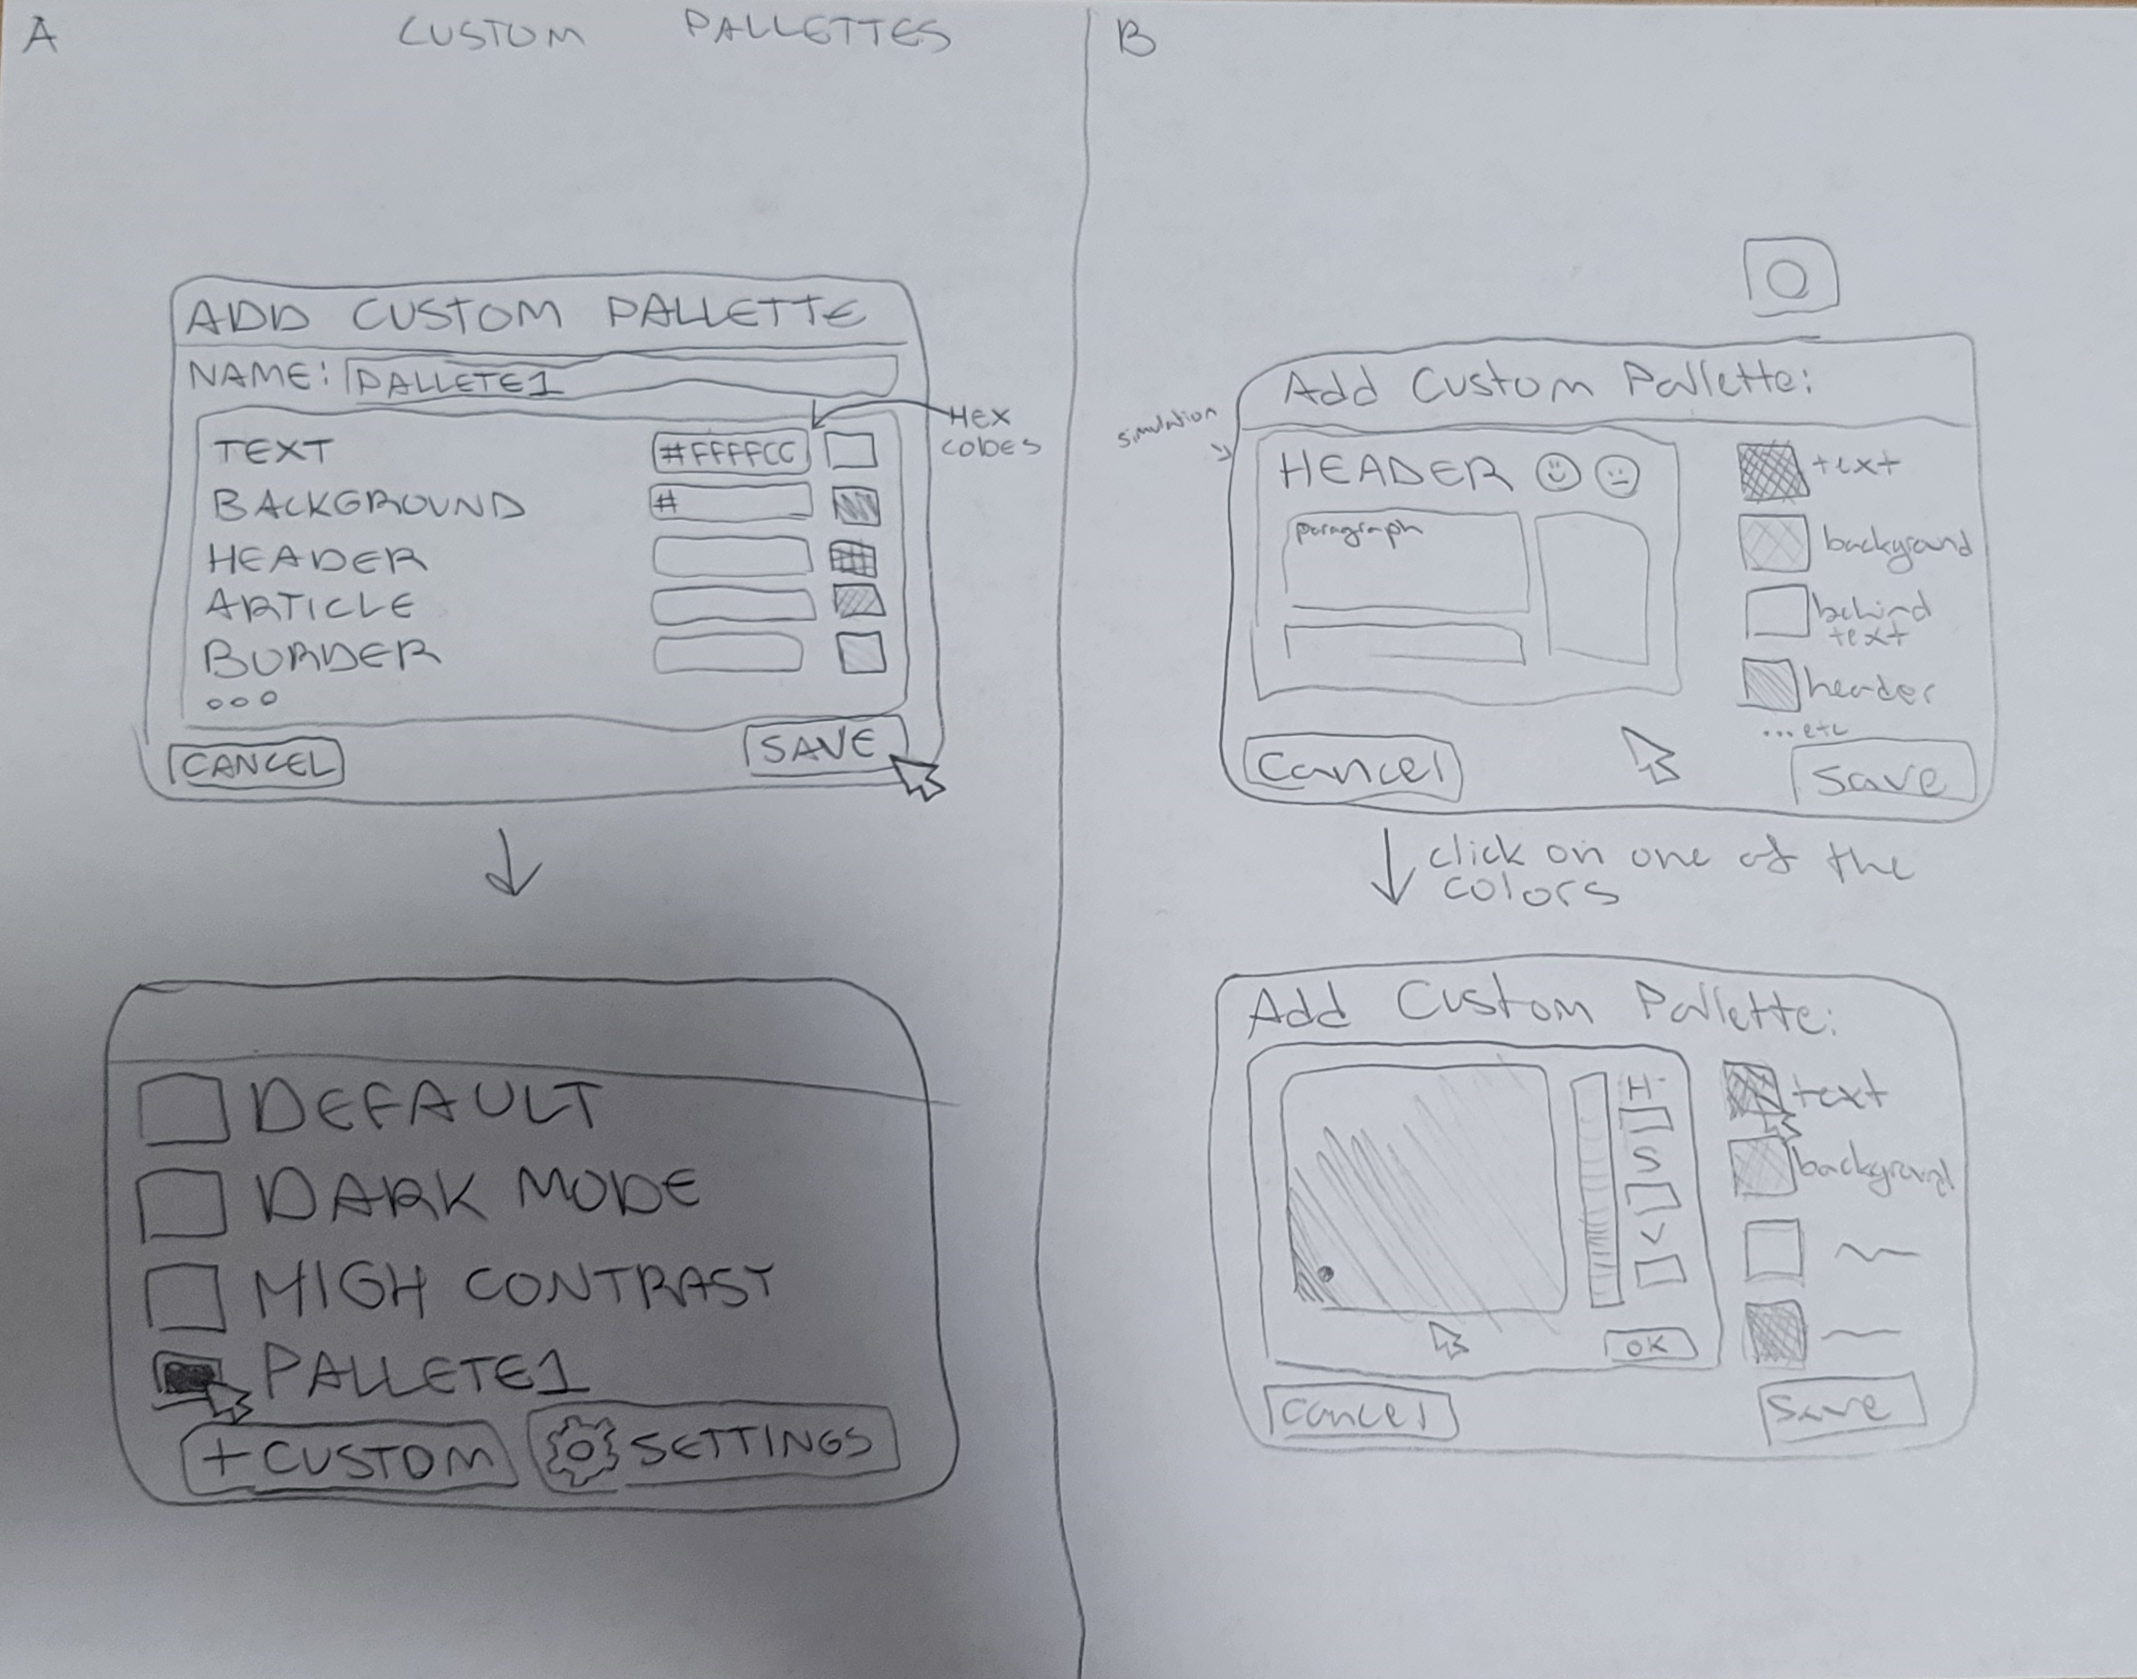 A
CUSTOM PALLETTES
ADD CUSTOM PALLETTE
NAME: PALLETE1
TEXT #FFFFCC
BACKGROUND #
HEADER
ARTICLE
BORDER
ooo
HEX
CODES
CANCEL
SAVE
DEFAULT
DARK MODE
HIGH CONTRAST
PALLETE1
+CUSTOM
SETTINGS
B
Add Custom Pallette:
simulation
HEADER
paragraph
text
background
behind
text
header
...etc
Cancel
Save
click on one of the
colors
Add Custom Pallette:
H
S
V
OK
text
background
Cancel
Save